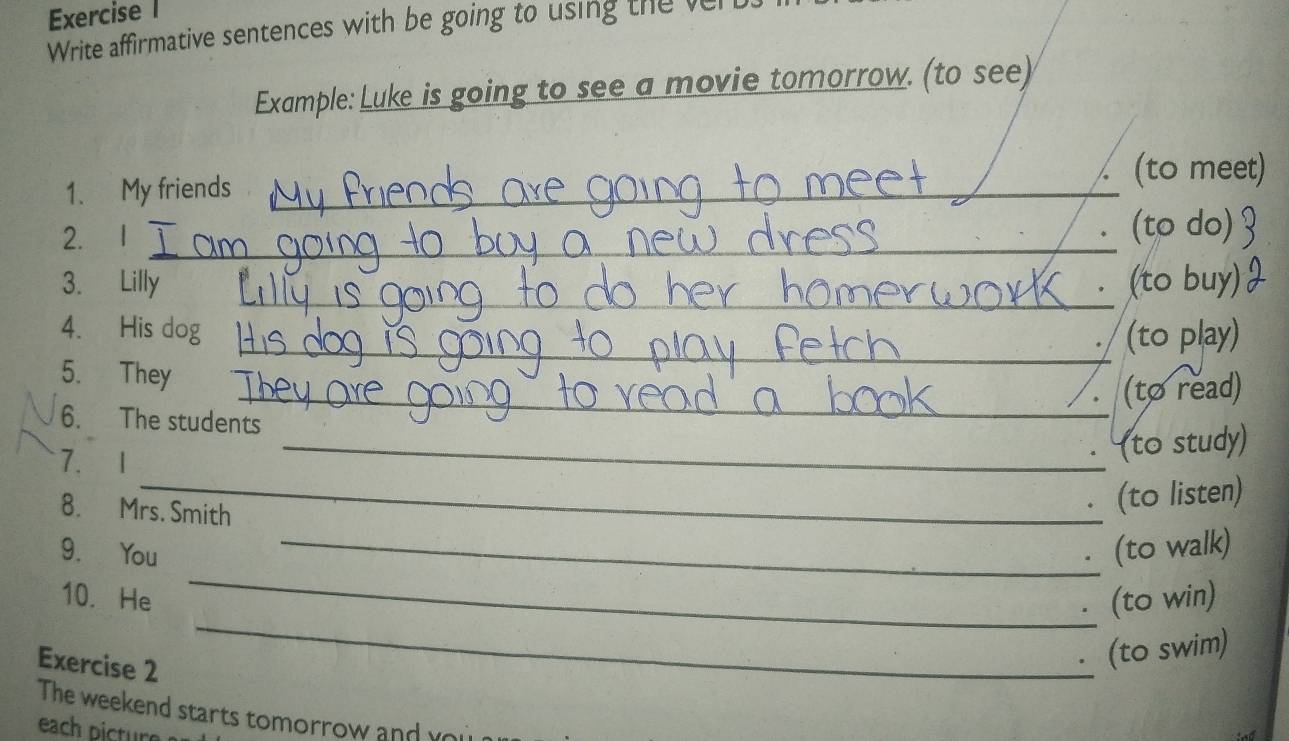 Exercise 1
Write affirmative sentences with be going to using the
Example: Luke is going to see a movie tomorrow. (to see)
1. My friends My friends are going to meet . (to meet)
2. I I am going to buy a new dress . (to do) 3
3. Lilly Lilly is going to do her homerwork . (to buy) 2
4. His dog His dog is going to play fetch . (to play)
5. They They are going to read a book . (to read)
6. The students . (to study)
7. I . (to listen)
8. Mrs. Smith . (to walk)
9. You . (to win)
10. He . (to swim)
Exercise 2
The weekend starts tomorrow and
each picture